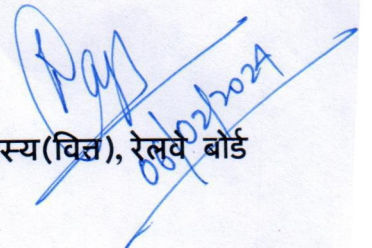 06/02/2024
स्य(वित्त), रेलवे बोर्ड